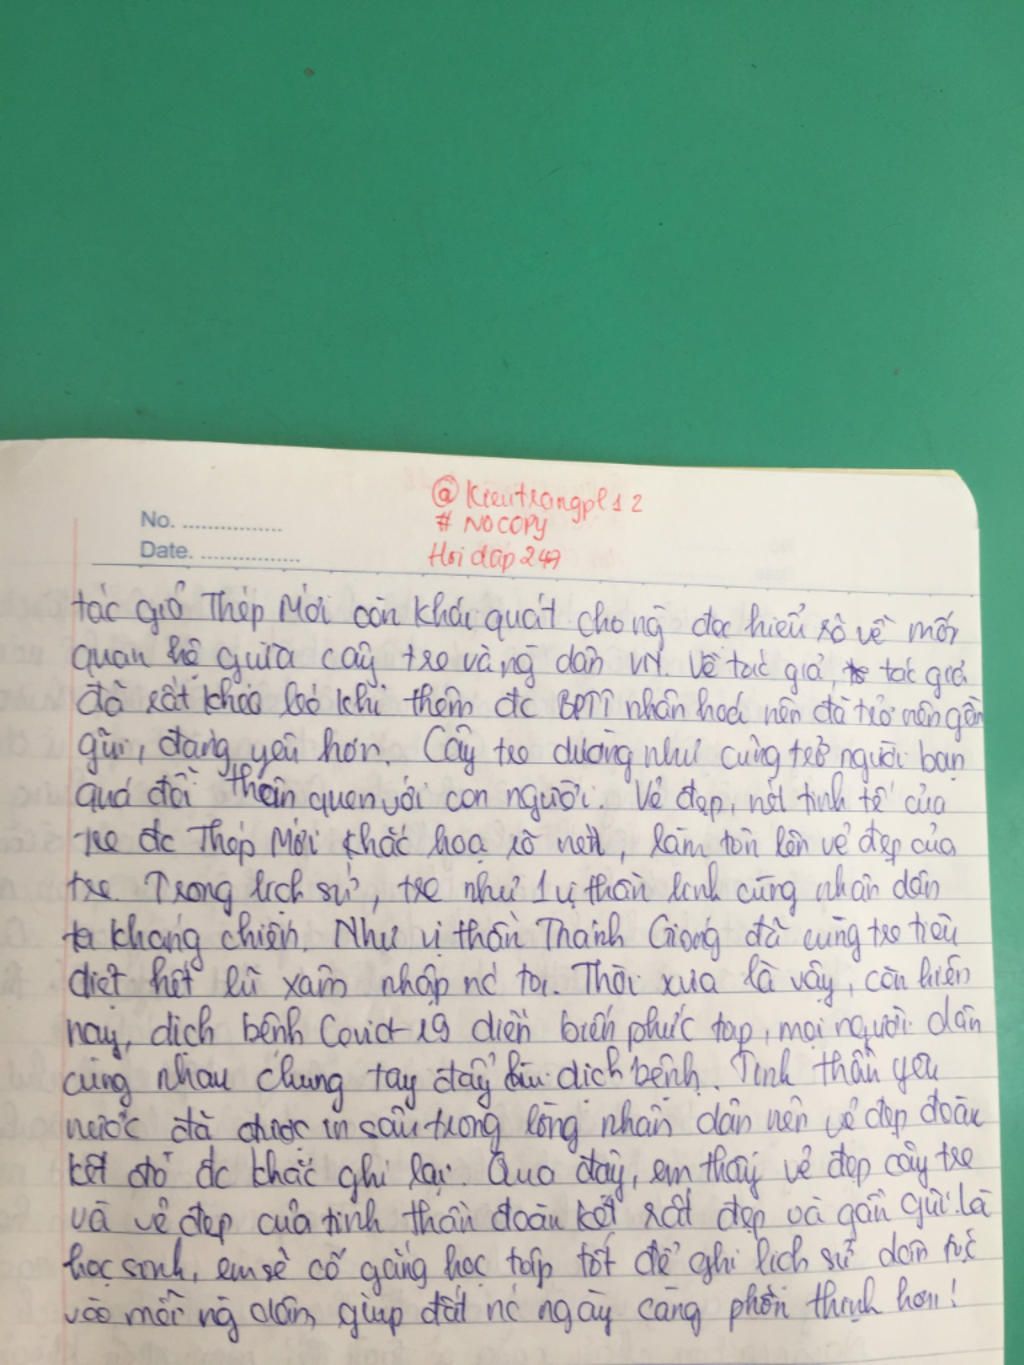 @Kieutrangpl12
No. ................
# NOCOPY
Date. ................
Hoi dap 247
tác giả Thép Mới còn khái quát cho ng đọc hiểu rõ về mối
quan hệ giữa cây tre và ng dân VN. Về tác giả, tác giả
đã rất khéo léo khi thêm đc BPTT nhân hoá nên đã trở nên gần
gũi, đáng yêu hơn. Cây tre dường như cũng trở người bạn
quá đỗi thân quen với con người. Vẻ đẹp, nét tinh tế của
tre đc Thép Mới khắc hoạ rõ nét, làm tôn lên vẻ đẹp của
tre. Trong lịch sử, tre như 1 vị thần linh cùng nhân dân
ta kháng chiến. Như vị thần Thánh Gióng đã cùng tre tiêu
diệt hết lũ xâm nhập nc ta. Thời xưa là vậy, còn hiện
nay, dịch bệnh Covid-19 diễn biến phức tạp, mọi người dân
cùng nhau chung tay đẩy lùi dịch bệnh. Tinh thần yêu
nước đã được in sâu trong lòng nhân dân nên vẻ đẹp đoàn
kết đó đc khắc ghi lại. Qua đây, em thấy vẻ đẹp cây tre
và vẻ đẹp của tinh thần đoàn kết rất đẹp và gần gũi. Là
học sinh, em sẽ cố gắng học tập tốt để ghi lịch sử dân tộc
vào mỗi ng dân, giúp đất nc ngày càng phồn thịnh hơn!